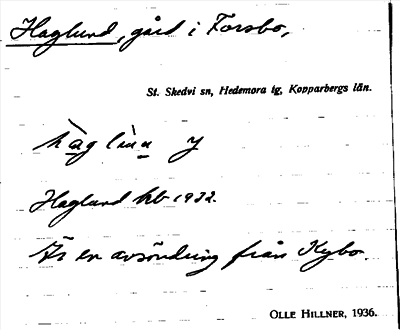 Haglund, gård i Forsbo,
St. Skedvi sn, Hedemora tg, Kopparbergs län.
Haglund kb 1932.
Är en avsöndring från Kybo.
OLLE HILLNER, 1936.